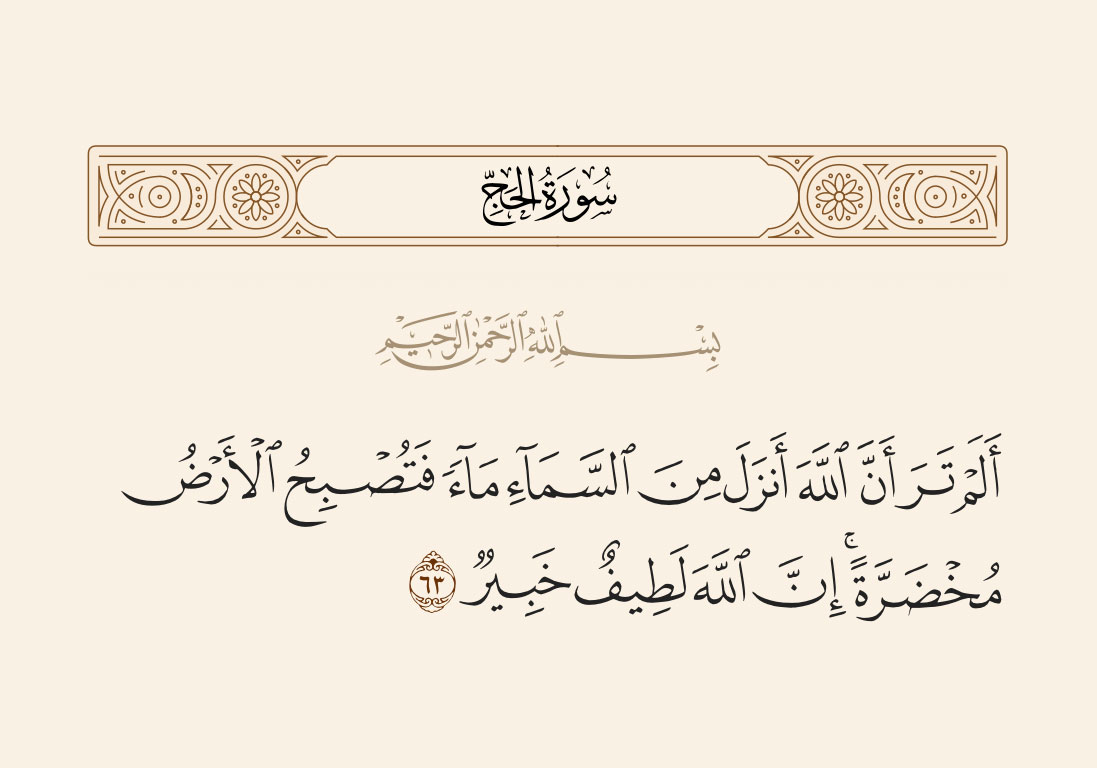 سُورَةُ الحَجِّ
بِسْمِ ٱللَّهِ ٱلرَّحْمَٰنِ ٱلرَّحِيمِ
أَلَمْ تَرَ أَنَّ ٱللَّهَ أَنزَلَ مِنَ ٱلسَّمَآءِ مَآءً فَتُصْبِحُ ٱلْأَرْضُ
مُخْضَرَّةً ۚ إِنَّ ٱللَّهَ لَطِيفٌ خَبِيرٌ ٦٣